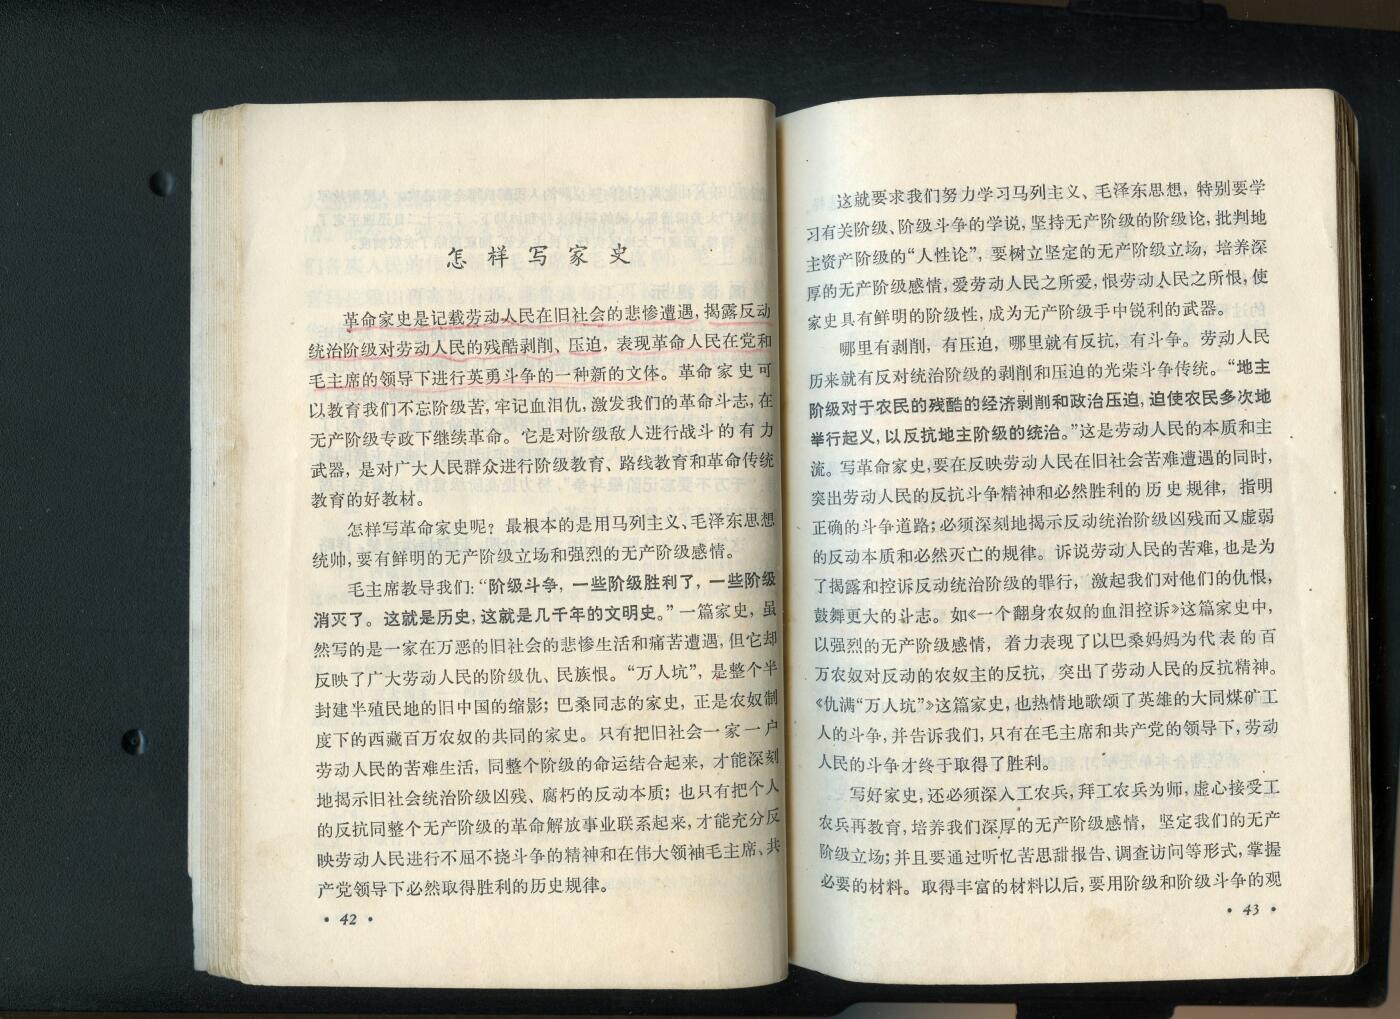 怎样写家史
革命家史是记载劳动人民在旧社会的悲惨遭遇，揭露反动
统治阶级对劳动人民的残酷剥削、压迫，表现革命人民在党和
毛主席的领导下进行英勇斗争的一种新的文体。革命家史可
以教育我们不忘阶级苦，牢记血泪仇，激发我们的革命斗志，在
无产阶级专政下继续革命。它是对阶级敌人进行战斗的有力
武器，是对广大人民群众进行阶级教育、路线教育和革命传统
教育的好教材。
怎样写革命家史呢？最根本的是用马列主义、毛泽东思想
统帅，要有鲜明的无产阶级立场和强烈的无产阶级感情。
毛主席教导我们：“阶级斗争，一些阶级胜利了，一些阶级
消灭了。这就是历史，这就是几千年的文明史。”一篇家史，虽
然写的是一家在万恶的旧社会的悲惨生活和痛苦遭遇，但它却
反映了广大劳动人民的阶级仇、民族恨。“万人坑”，是整个半
封建半殖民地的旧中国的缩影；巴桑同志的家史，正是农奴制
度下的西藏百万农奴的共同的家史。只有把旧社会一家一户
劳动人民的苦难生活，同整个阶级的命运结合起来，才能深刻
地揭示旧社会统治阶级凶残、腐朽的反动本质；也只有把个人
的反抗同整个无产阶级的革命解放事业联系起来，才能充分反
映劳动人民进行不屈不挠斗争的精神和在伟大领袖毛主席、共
产党领导下必然取得胜利的历史规律。
• 42 •
这就要求我们努力学习马列主义、毛泽东思想，特别要学
习有关阶级、阶级斗争的学说，坚持无产阶级的阶级论，批判地
主资产阶级的“人性论”，要树立坚定的无产阶级立场，培养深
厚的无产阶级感情，爱劳动人民之所爱，恨劳动人民之所恨，使
家史具有鲜明的阶级性，成为无产阶级手中锐利的武器。
哪里有剥削，有压迫，哪里就有反抗，有斗争。劳动人民
历来就有反对统治阶级的剥削和压迫的光荣斗争传统。“地主
阶级对于农民的残酷的经济剥削和政治压迫，迫使农民多次地
举行起义，以反抗地主阶级的统治。”这是劳动人民的本质和主
流。写革命家史，要在反映劳动人民在旧社会苦难遭遇的同时，
突出劳动人民的反抗斗争精神和必然胜利的历史规律，指明
正确的斗争道路；必须深刻地揭示反动统治阶级凶残而又虚弱
的反动本质和必然灭亡的规律。诉说劳动人民的苦难，也是为
了揭露和控诉反动统治阶级的罪行，激起我们对他们的仇恨，
鼓舞更大的斗志。如《一个翻身农奴的血泪控诉》这篇家史中，
以强烈的无产阶级感情，着力表现了以巴桑妈妈为代表的百
万农奴对反动的农奴主的反抗，突出了劳动人民的反抗精神。
《仇满“万人坑”》这篇家史，也热情地歌颂了英雄的大同煤矿工
人的斗争，并告诉我们，只有在毛主席和共产党的领导下，劳动
人民的斗争才终于取得了胜利。
写好家史，还必须深入工农兵，拜工农兵为师，虚心接受工
农兵再教育，培养我们深厚的无产阶级感情，坚定我们的无产
阶级立场；并且要通过听忆苦思甜报告、调查访问等形式，掌握
必要的材料。取得丰富的材料以后，要用阶级和阶级斗争的观
• 43 •